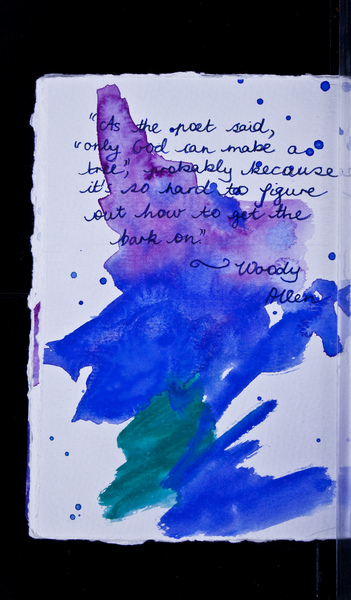 "As the poet said,
"only God can make a
tree," probably because
it's so hard to figure
out how to get the
bark on."
Woody
Allen